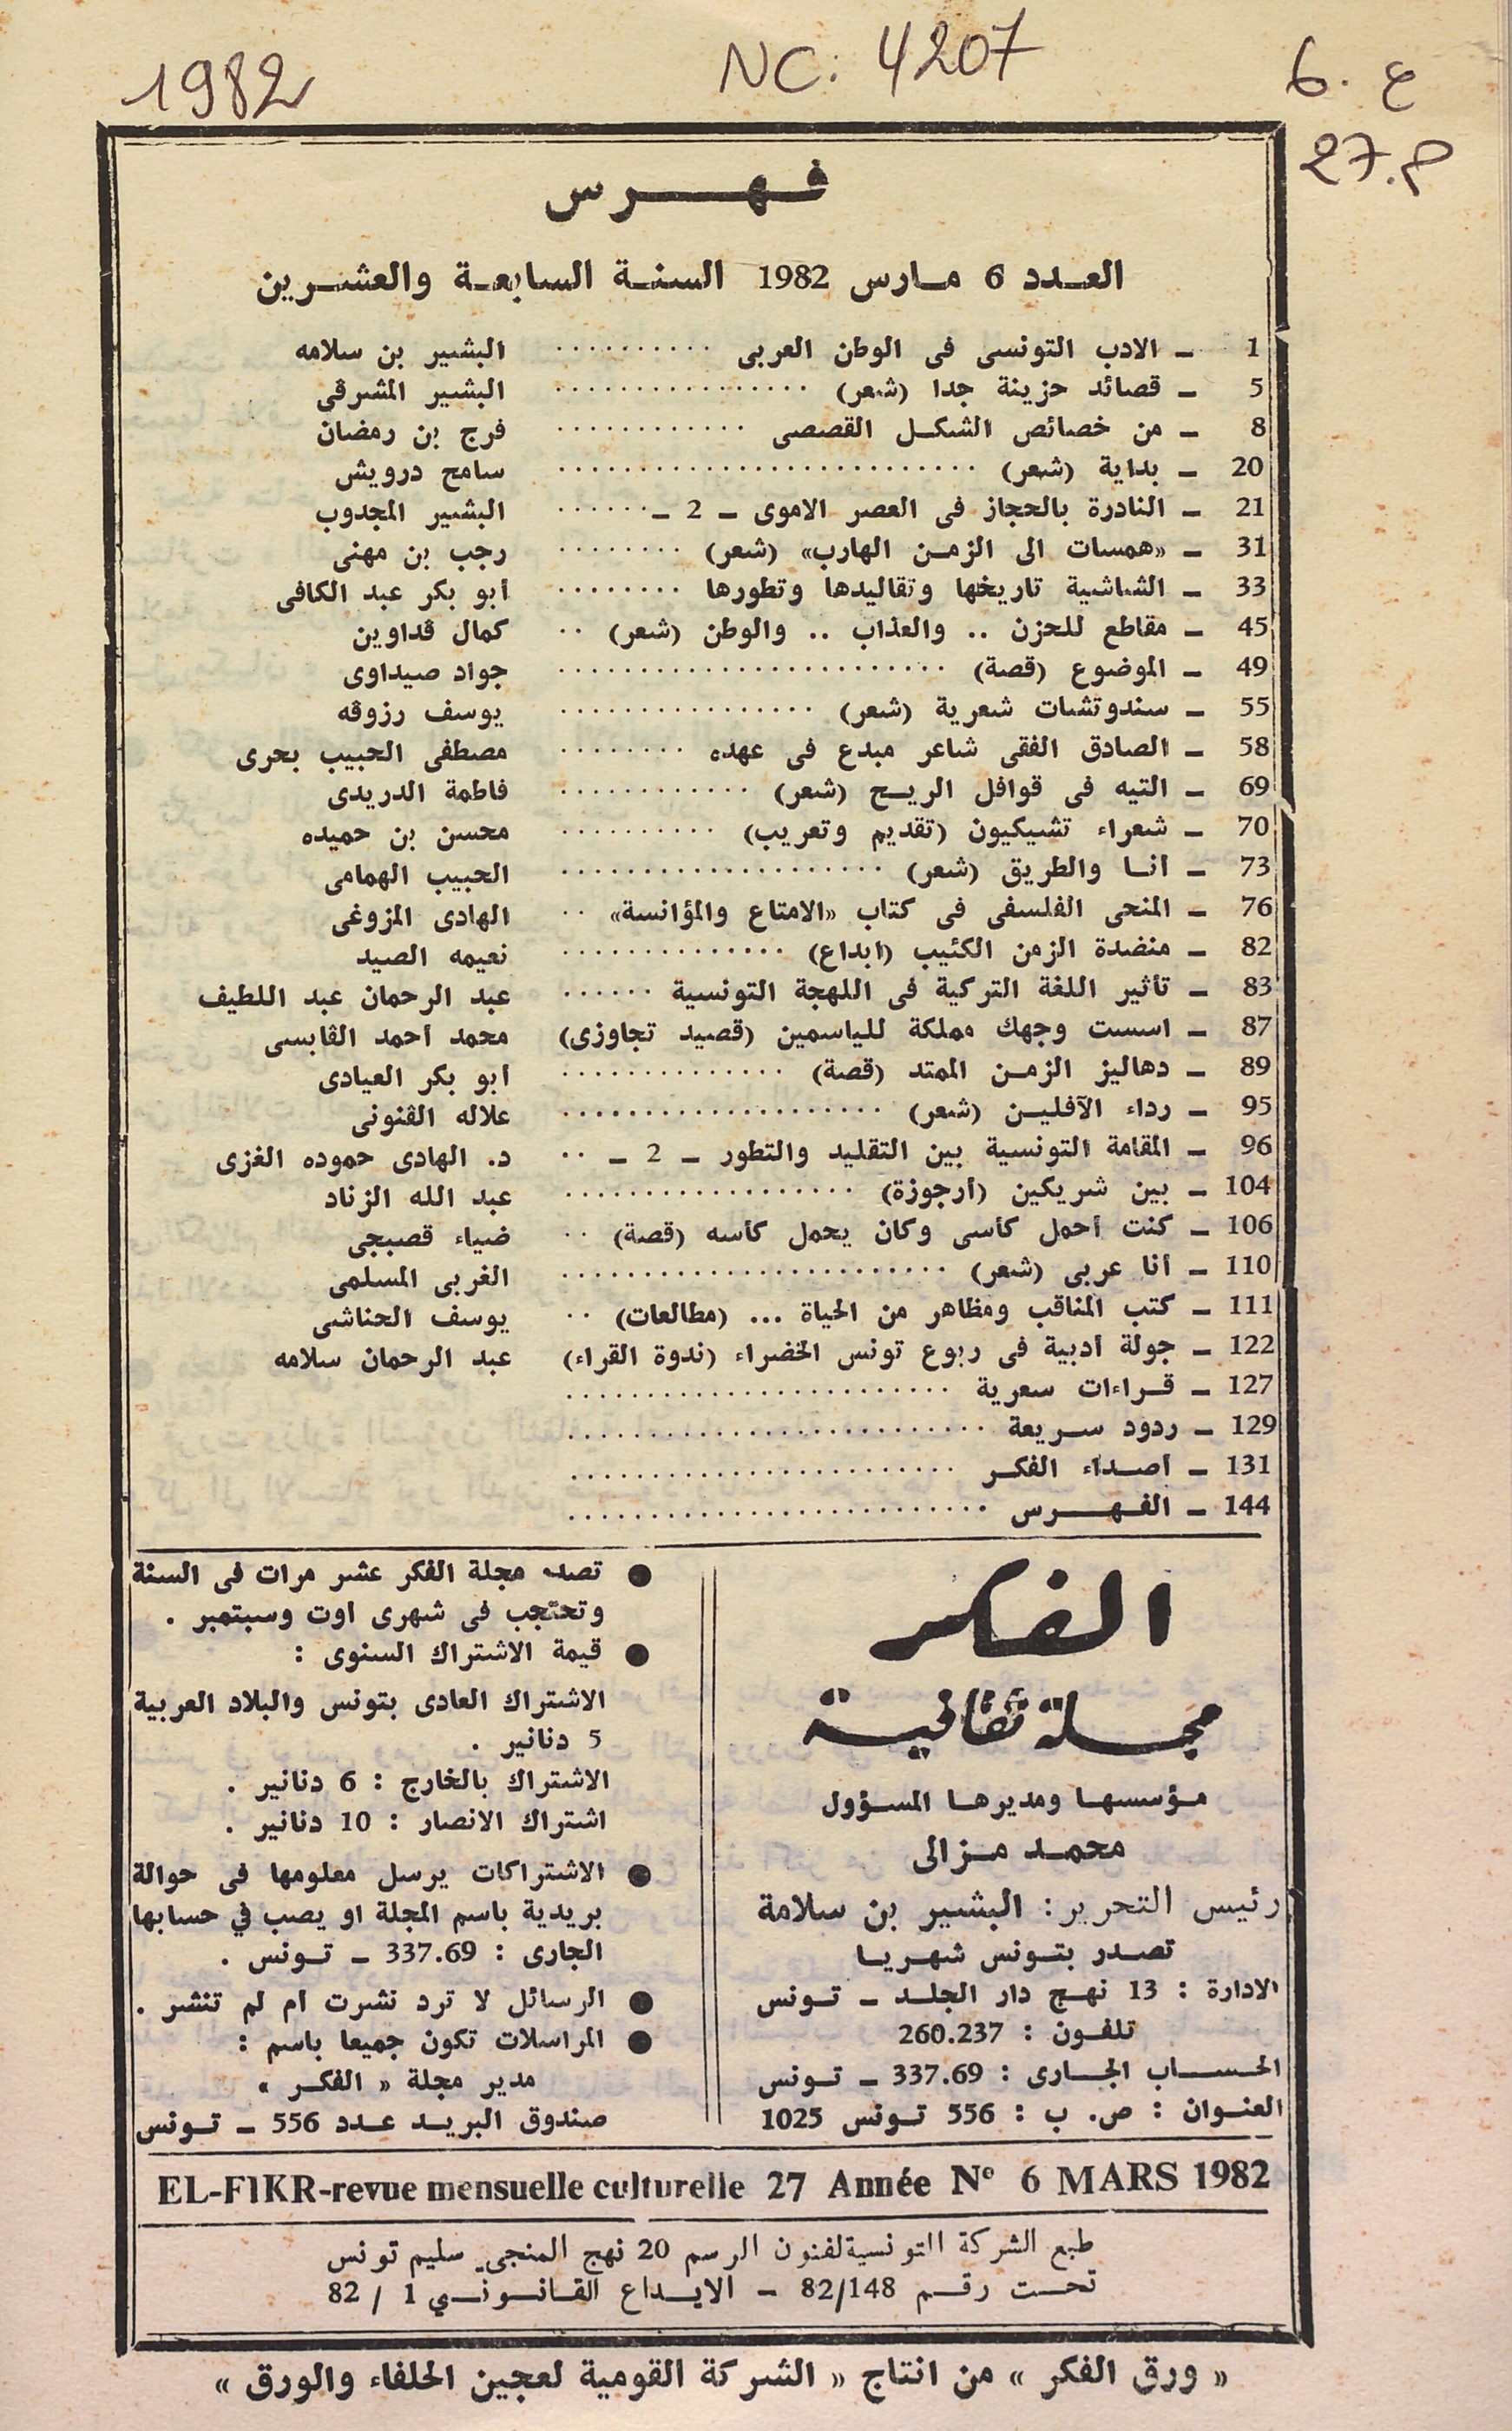 1982
NC: 4207
ع . 6
م . 27
فهرس
العدد 6 مارس 1982 السنة السابعة والعشرين
1 ـ الادب التونسى فى الوطن العربى .......... البشير بن سلامه
5 ـ قصائد حزينة جدا (شعر) ................ البشير المشرقى
8 ـ من خصائص الشكل القصصى ............ فرج بن رمضان
20 ـ بداية (شعر) .......................... سامح درويش
21 ـ النادرة بالحجاز فى العصر الاموى ـ 2 ـ ...... البشير المجدوب
31 ـ «همسات الى الزمن الهارب» (شعر) ........ رجب بن مهنى
33 ـ الشاشية تاريخها وتقاليدها وتطورها ........ أبو بكر عبد الكافى
45 ـ مقاطع للحزن .. والعذاب .. والوطن (شعر) .. كمال ڤداوين
49 ـ الموضوع (قصة) ........................ جواد صيداوى
55 ـ سندوتشات شعرية (شعر) ................ يوسف رزوقه
58 ـ الصادق الفقى شاعر مبدع فى عهده ........ مصطفى الحبيب بحرى
69 ـ التيه فى قوافل الريح (شعر) ............ فاطمة الدريدى
70 ـ شعراء تشيكيون (تقديم وتعريب) .......... محسن بن حميده
73 ـ أنا والطريق (شعر) .................... الحبيب الهمامى
76 ـ المنحى الفلسفى فى كتاب «الامتاع والمؤانسة» .. الهادى المزوغى
82 ـ منضدة الزمن الكئيب (ابداع) .............. نعيمه الصيد
83 ـ تأثير اللغة التركية فى اللهجة التونسية ...... عبد الرحمان عبد اللطيف
87 ـ اسست وجهك مملكة للياسمين (قصيد تجاوزى) محمد أحمد القابسى
89 ـ دهاليز الزمن الممتد (قصة) .............. أبو بكر العيادى
95 ـ رداء الآفلين (شعر) .................... علاله القنونى
96 ـ المقامة التونسية بين التقليد والتطور ـ 2 ـ .. د. الهادى حموده الغزى
104 ـ بين شريكين (أرجوزة) .................. عبد الله الزناد
106 ـ كنت أحمل كأسى وكان يحمل كأسه (قصة) .. ضياء قصبجى
110 ـ أنا عربى (شعر) ........................ الغربى المسلمى
111 ـ كتب المناقب ومظاهر من الحياة ... (مطالعات) .. يوسف الحناشى
122 ـ جولة أدبية فى ربوع تونس الخضراء (ندوة القراء) عبد الرحمان سلامه
127 ـ قراءات سعرية ........................
129 ـ ردود سريعة ..........................
131 ـ أصداء الفكر ........................
144 ـ الفهرس ..........................
الفكر
مجلة ثقافية
مؤسسها ومديرها المسؤول
محمد مزالى
رئيس التحرير: البشير بن سلامة
تصدر بتونس شهريا
الادارة : 13 نهج دار الجلد ـ تونس
تلفون : 260.237
الحساب الجارى : 337.69 ـ تونس
العنوان : ص. ب : 556 تونس 1025
● تصد مجلة الفكر عشر مرات فى السنة
وتحتجب فى شهرى اوت وسبتمبر .
● قيمة الاشتراك السنوى :
الاشتراك العادى بتونس والبلاد العربية
5 دنانير .
الاشتراك بالخارج : 6 دنانير .
اشتراك الانصار : 10 دنانير .
● الاشتراكات يرسل معلومها فى حوالة
بريدية باسم المجلة او يصب في حسابها
الجارى : 337.69 ـ تونس .
● الرسائل لا ترد نشرت أم لم تنشر .
● المراسلات تكون جميعا باسم :
مدير مجلة « الفكر »
صندوق البريد عدد 556 ـ تونس
EL-FIKR-revue mensuelle culturelle 27 Année N° 6 MARS 1982
طبع الشركة التونسية لفنون الرسم 20 نهج المنجي سليم تونس
تحت رقم 82/148 - الايداع القانوني 1 / 82
« ورق الفكر » من انتاج « الشركة القومية لعجين الحلفاء والورق »